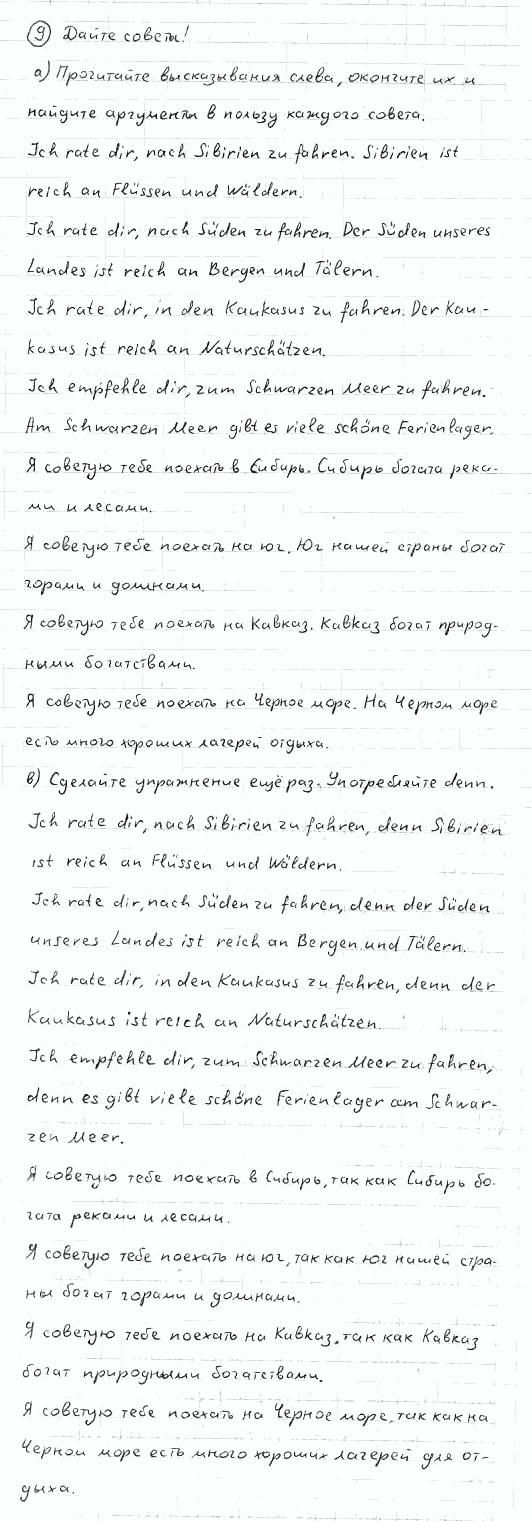 9 Дайте советы!
а) Прочитайте высказывания слева, окончите их и
найдите аргументы в пользу каждого совета.
Ich rate dir, nach Sibirien zu fahren. Sibirien ist
reich an Flüssen und Wäldern.
Ich rate dir, nach Süden zu fahren. Der Süden unseres
Landes ist reich an Bergen und Tälern.
Ich rate dir, in den Kaukasus zu fahren. Der Kau-
kasus ist reich an Naturschätzen.
Ich empfehle dir, zum Schwarzen Meer zu fahren.
Am Schwarzen Meer gibt es viele schöne Ferienlager.
Я советую тебе поехать в Сибирь. Сибирь богата река-
ми и лесами.
Я советую тебе поехать на юг. Юг нашей страны богат
горами и долинами.
Я советую тебе поехать на Кавказ. Кавказ богат природ-
ными богатствами.
Я советую тебе поехать на Черное море. На Черном море
есть много хороших лагерей отдыха.
в) Сделайте упражнение ещё раз. Употребляйте denn.
Ich rate dir, nach Sibirien zu fahren, denn Sibirien
ist reich an Flüssen und Wäldern.
Ich rate dir, nach Süden zu fahren, denn der Süden
unseres Landes ist reich an Bergen und Tälern.
Ich rate dir, in den Kaukasus zu fahren, denn der
Kaukasus ist reich an Naturschätzen.
Ich empfehle dir, zum Schwarzen Meer zu fahren,
denn es gibt viele schöne Ferienlager am Schwar-
zen Meer.
Я советую тебе поехать в Сибирь, так как Сибирь бо-
гата реками и лесами.
Я советую тебе поехать на юг, так как юг нашей стра-
ны богат горами и долинами.
Я советую тебе поехать на Кавказ, так как Кавказ
богат природными богатствами.
Я советую тебе поехать на Черное море, так как на
Черном море есть много хороших лагерей для от-
дыха.